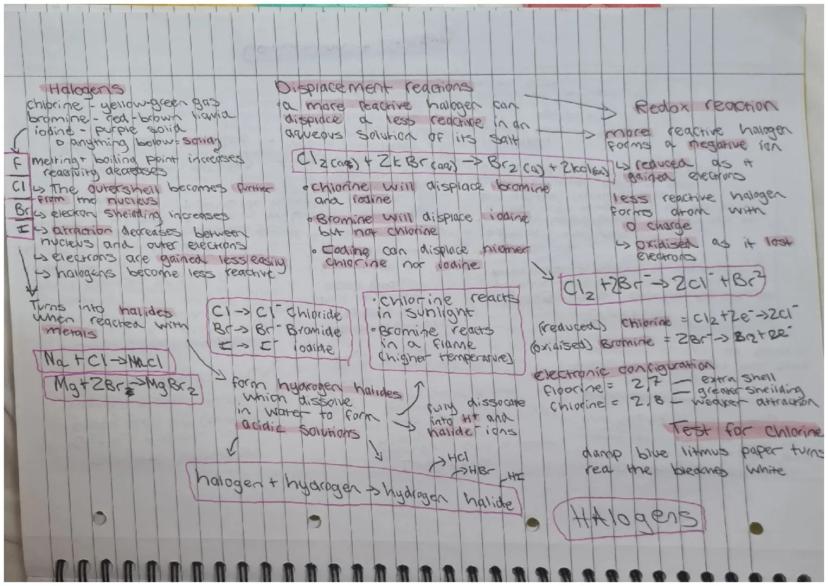 Halogens
chlorine - yellow-green gas
bromine - red-brown liquid
iodine - purple solid
anything below = solid
F
Cl
Br
I
melting + boiling point increases
reactivity decreases
↳ The outershell becomes further
from the nucleus
↳ electron sheilding increases
↳ attraction decreases between
nucleus and outer electrons
↳ electrons are gained less easily
↳ halogens become less reactive
Turns into halides
when reacted with
metals
Na + Cl → NaCl
Mg + 2Br₂ → MgBr₂
Displacement reactions
a more reactive halogen can
displace a less reactive in an
aqueous solution of its salt
Cl₂(aq) + 2KBr(aq) → Br₂(aq) + 2KCl(aq)
• Chlorine will displace bromine
and iodine
• Bromine will displace iodine
but not chlorine
• Iodine can displace niether
chlorine nor iodine
Cl → Cl⁻ Chloride
Br → Br⁻ Bromide
I → I⁻ Iodide
• Chlorine reacts
in sunlight
• Bromine reacts
in a flame
(higher temperature)
form hydrogen halides
which dissolve
in water to form
acidic solutions
fully dissociate
into H+ and
halide ions
halogen + hydrogen → hydrogen halide
→ HCl
→ HBr
HI
Redox reaction
more reactive halogen
forms a negative ion
↳ reduced as it
gained electrons
less reactive halogen
forms atom with
0 charge
↳ oxidised as it lost
electrons
Cl₂ + 2Br⁻ → 2Cl⁻ + Br²
(reduced) Chlorine = Cl₂ + 2e⁻ → 2Cl⁻
(oxidised) Bromine = 2Br⁻ → Br₂ + 2e⁻
electronic configuration
flourine = 2,7 — extra shell
— greater sheilding
chlorine = 2,8 — weaker attraction
Test for chlorine
damp blue litmus paper turns
red the bleaches white
HAlogens